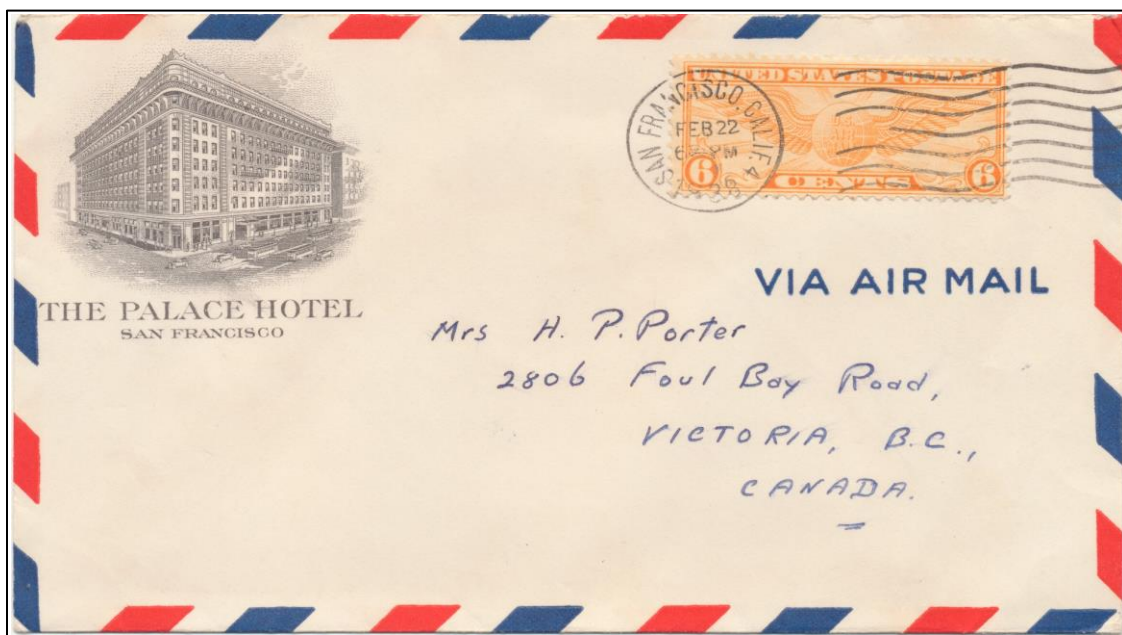 THE PALACE HOTEL
SAN FRANCISCO
SAN FRANCISCO, CALIF. 4
FEB 22
PM
UNITED STATES POSTAGE
6 CENTS 6
VIA AIR MAIL
Mrs H. P. Porter
2806 Foul Bay Road,
VICTORIA, B.C.,
CANADA.